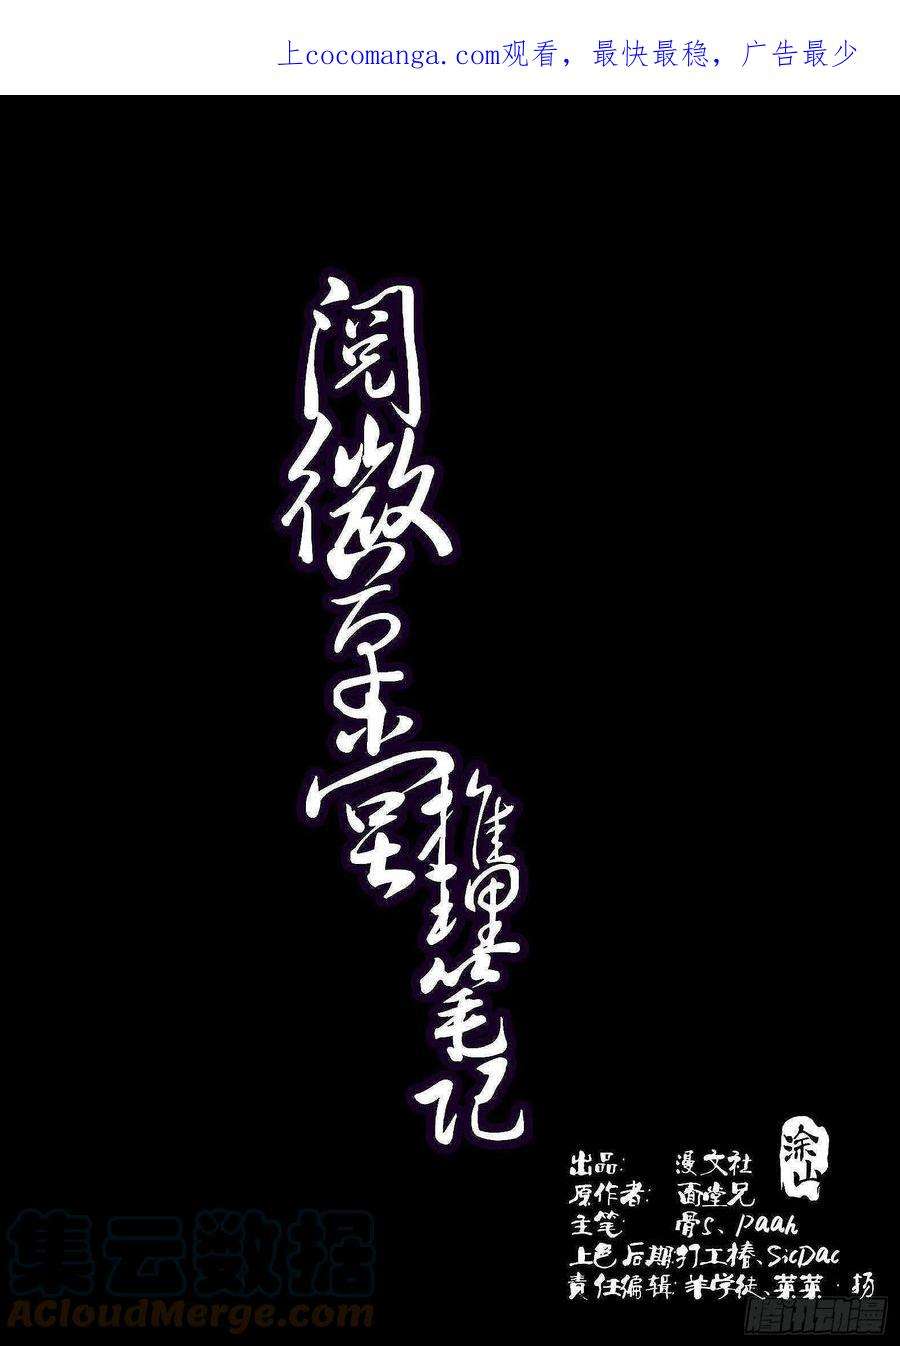 上cocomanga.com观看，最快最稳，广告最少
阅微草堂
推理笔记
涂山
出品： 漫文社
原作者： 面堂兄
主笔： 骨S、paah
上色后期打工椿、SicDac
責任编辑：羊学徒、菜菜·扬
集云数据
ACloudMerge.com
腾讯动漫